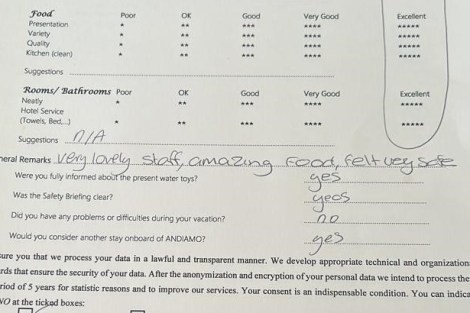 Food Poor OK Good Very Good Excellent
Presentation * ** *** **** *****
Variety * ** *** **** *****
Quality * ** *** **** *****
Kitchen (clean) * ** *** **** *****
Suggestions
Rooms/ Bathrooms Poor OK Good Very Good Excellent
Neatly * ** *** **** *****
Hotel Service
(Towels, Bed,...) * ** *** **** *****
Suggestions N/A
neral Remarks Very lovely staff, amazing food, felt very safe
Were you fully informed about the present water toys? yes
Was the Safety Briefing clear? yes
Did you have any problems or difficulties during your vacation? no
Would you consider another stay onboard of ANDIAMO? yes
sure you that we process your data in a lawful and transparent manner. We develop appropriate technical and organization
rds that ensure the security of your data. After the anonymization and encryption of your personal data we intend to process the
riod of 5 years for statistic reasons and to improve our services. Your consent is an indispensable condition. You can indica
NO at the ticked boxes: